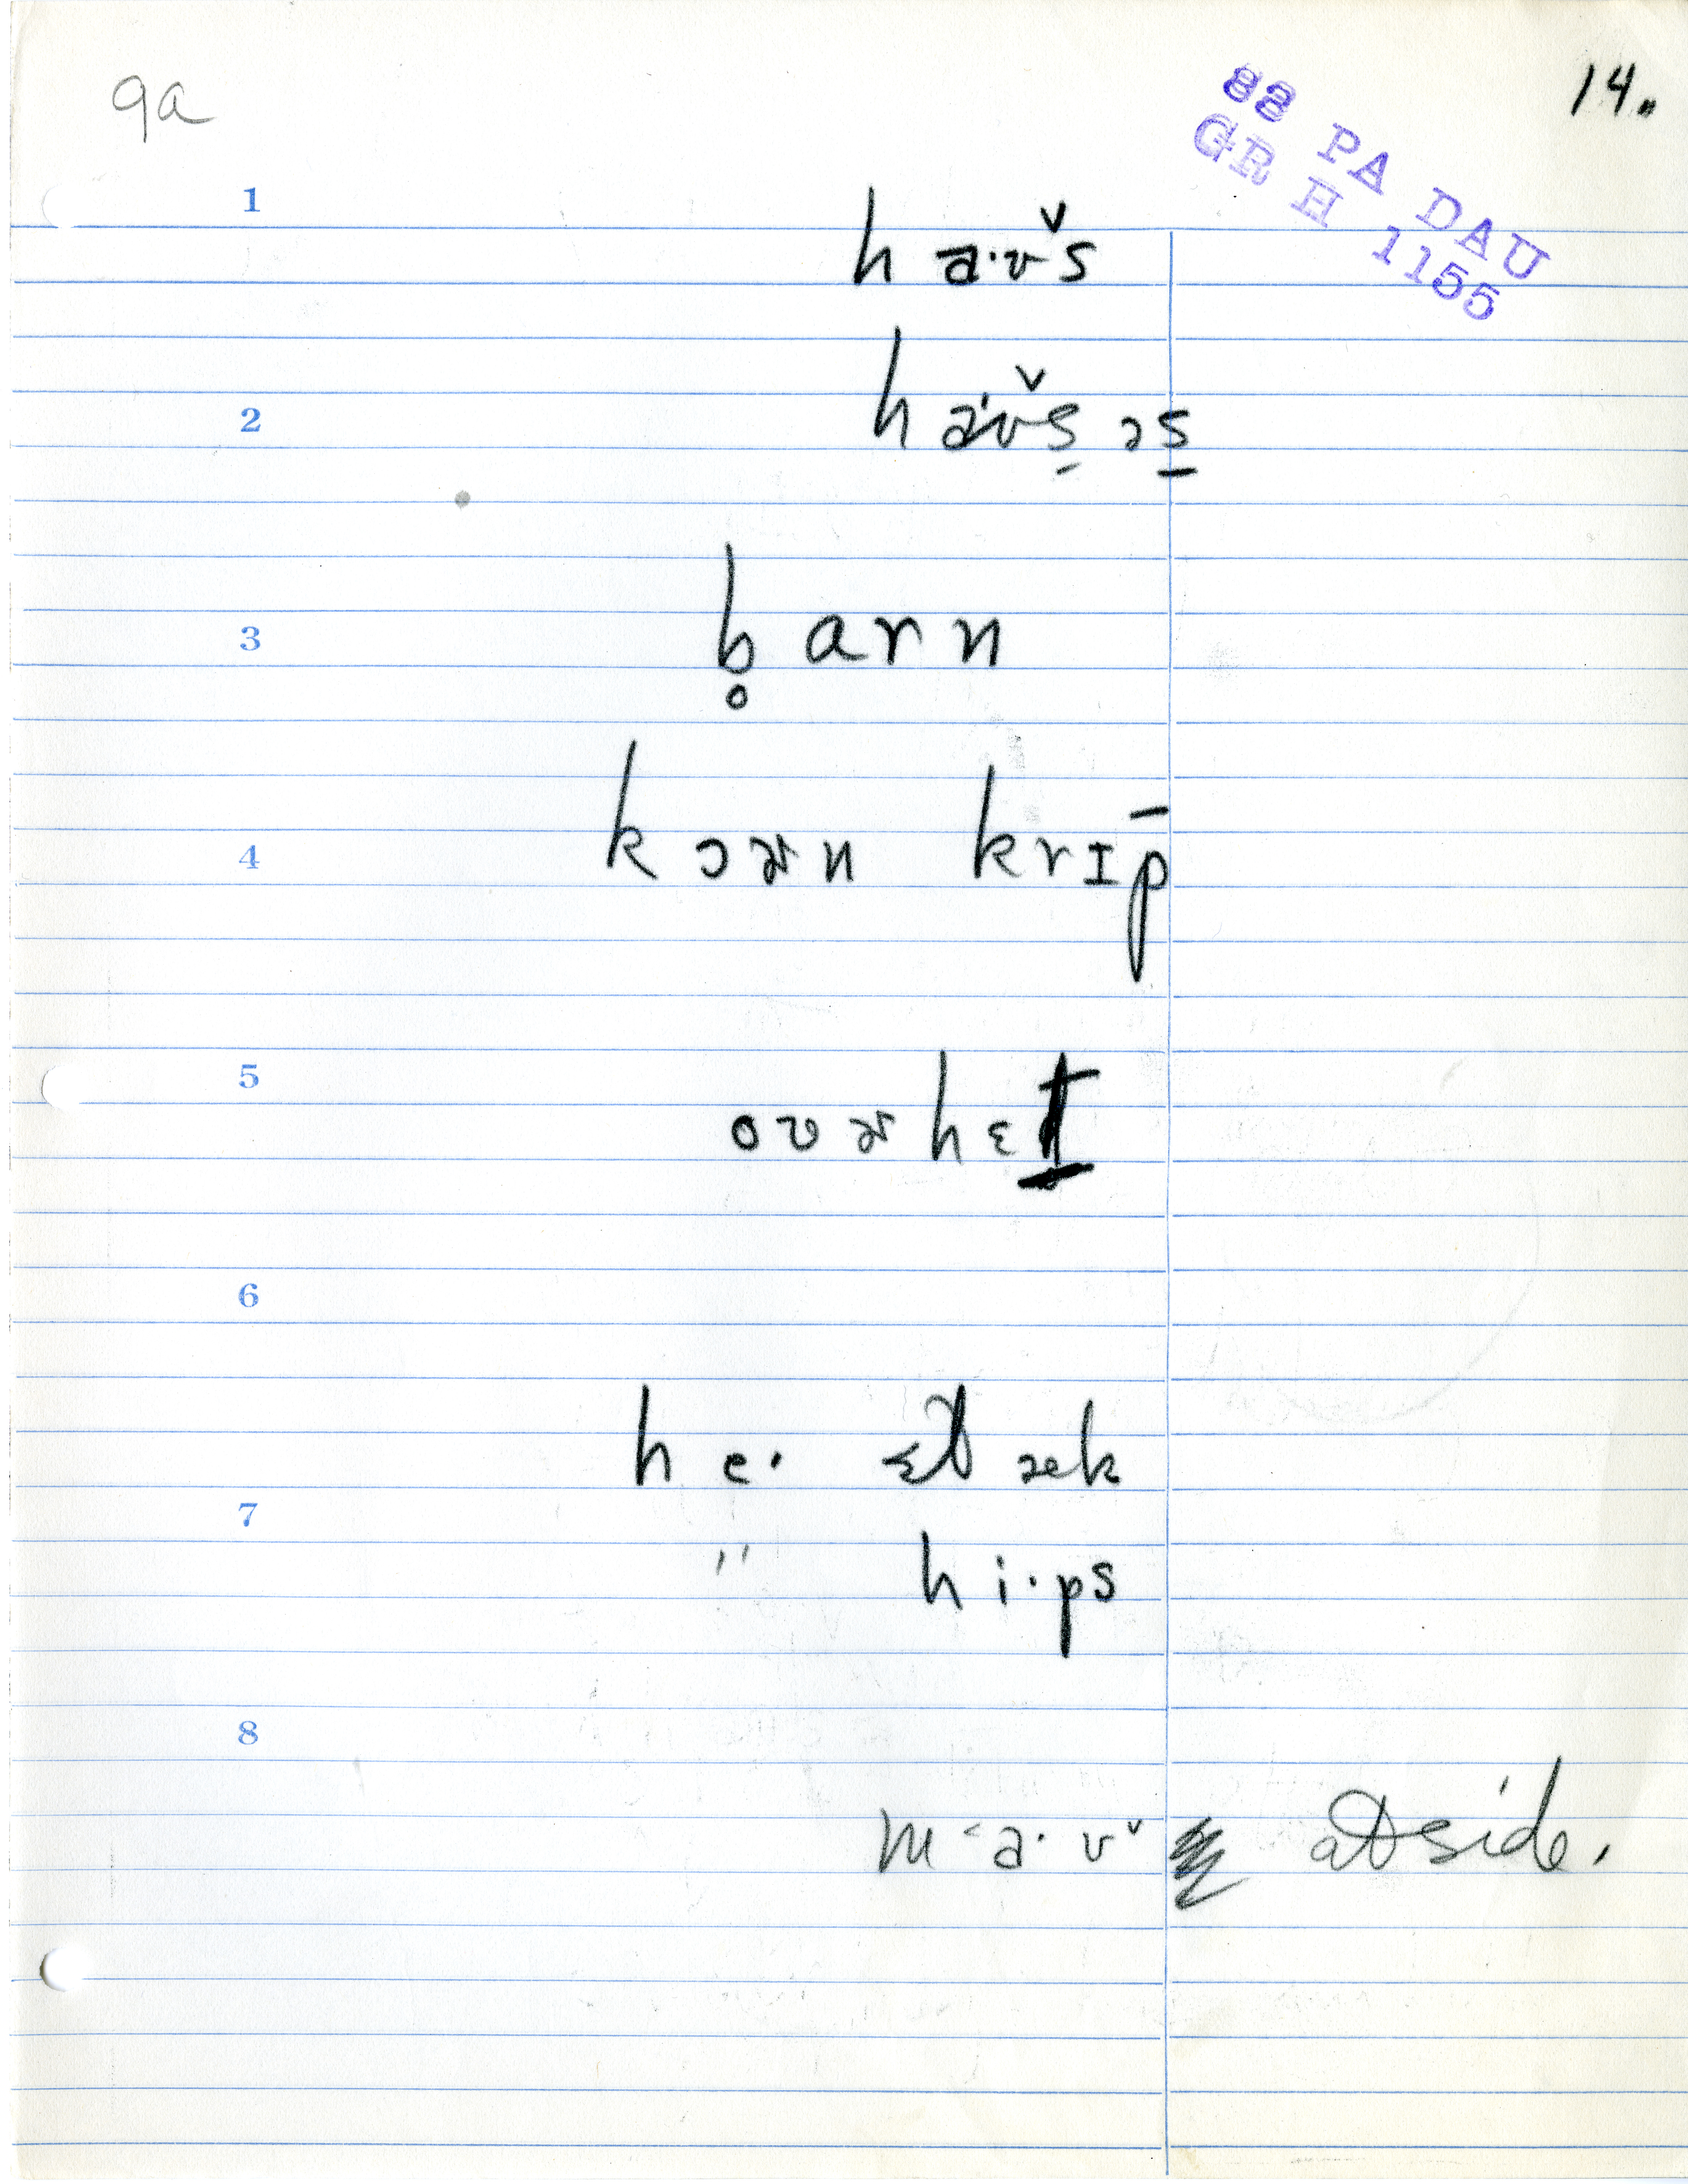 9a
14.
88 PA DAU
GR H 1155
1
ha·ʊ̆s
2
ha·ʊ̆s̠ əs̠
3
b̥arn
4
kɔɚn krɪp̄
5
oʊɚhɛt̠
6
he·
7
" hi·ps
8
m˂a·ʊ˅ side.